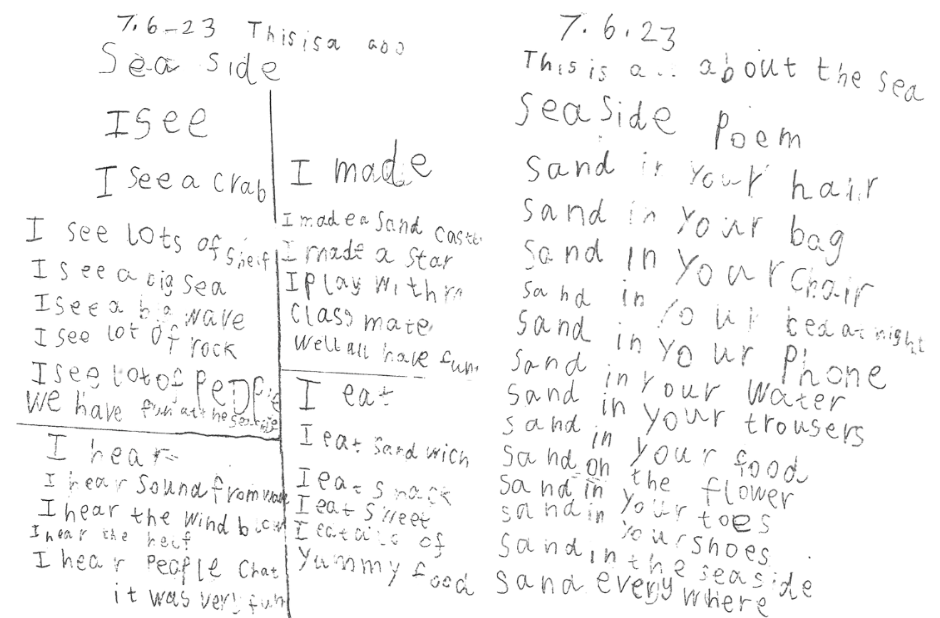 7.6-23 This is a
Sea side
I see
I see a crab
I see lots of
I see a big sea
I see a big wave
I see lot of rock
I see lot of
We have fun at the seaside
I hear
I hear sound from
I hear the wind
I hear the
I hear People chat
it was very fun
I made
I made a sand castle
I made a star
I play with
class mate
well all have fun
I eat
I eat sand wich
I eat snack
I eat sweet
I eat of
yummy food
7.6.23
This is a .. about the sea
seaside Poem
sand in your hair
sand in your bag
sand in your chair
sand in your bed at night
sand in your Phone
sand in your water
sand in your trousers
sand in your food
sand on the flower
sand in your toes
sand in your shoes
sand in the seaside
sand every where